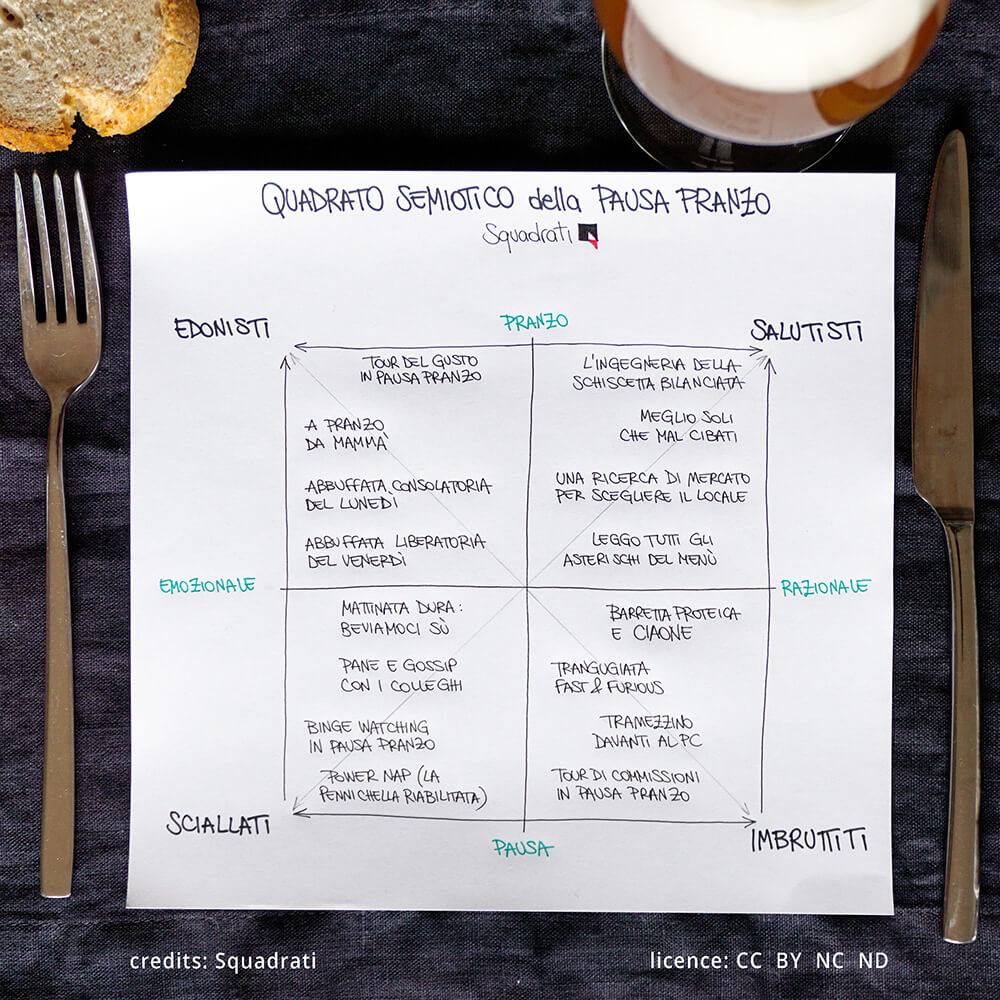 QUADRATO SEMIOTICO della PAUSA PRANZO
Squadrati
PRANZO
EDONISTI
SALUTISTI
TOUR DEL GUSTO
IN PAUSA PRANZO
A PRANZO
DA MAMMÀ
ABBUFFATA CONSOLATORIA
DEL LUNEDÌ
ABBUFFATA LIBERATORIA
DEL VENERDÌ
L'INGEGNERIA DELLA
SCHISCETTA BILANCIATA
MEGLIO SOLI
CHE MAL CIBATI
UNA RICERCA DI MERCATO
PER SCEGLIERE IL LOCALE
LEGGO TUTTI GLI
ASTERISCHI DEL MENÙ
EMOZIONALE
RAZIONALE
MATTINATA DURA:
BEVIAMOCI SÙ
PANE E GOSSIP
CON I COLLEGHI
BINGE WATCHING
IN PAUSA PRANZO
POWER NAP (LA
PENNICHELLA RIABILITATA)
BARRETTA PROTEICA
E CIAONE
TRANGUGIATA
FAST & FURIOUS
TRAMEZZINO
DAVANTI AL PC
TOUR DI COMMISSIONI
IN PAUSA PRANZO
SCIALLATI
IMBRUTTITI
PAUSA
credits: Squadrati
licence: CC BY NC ND